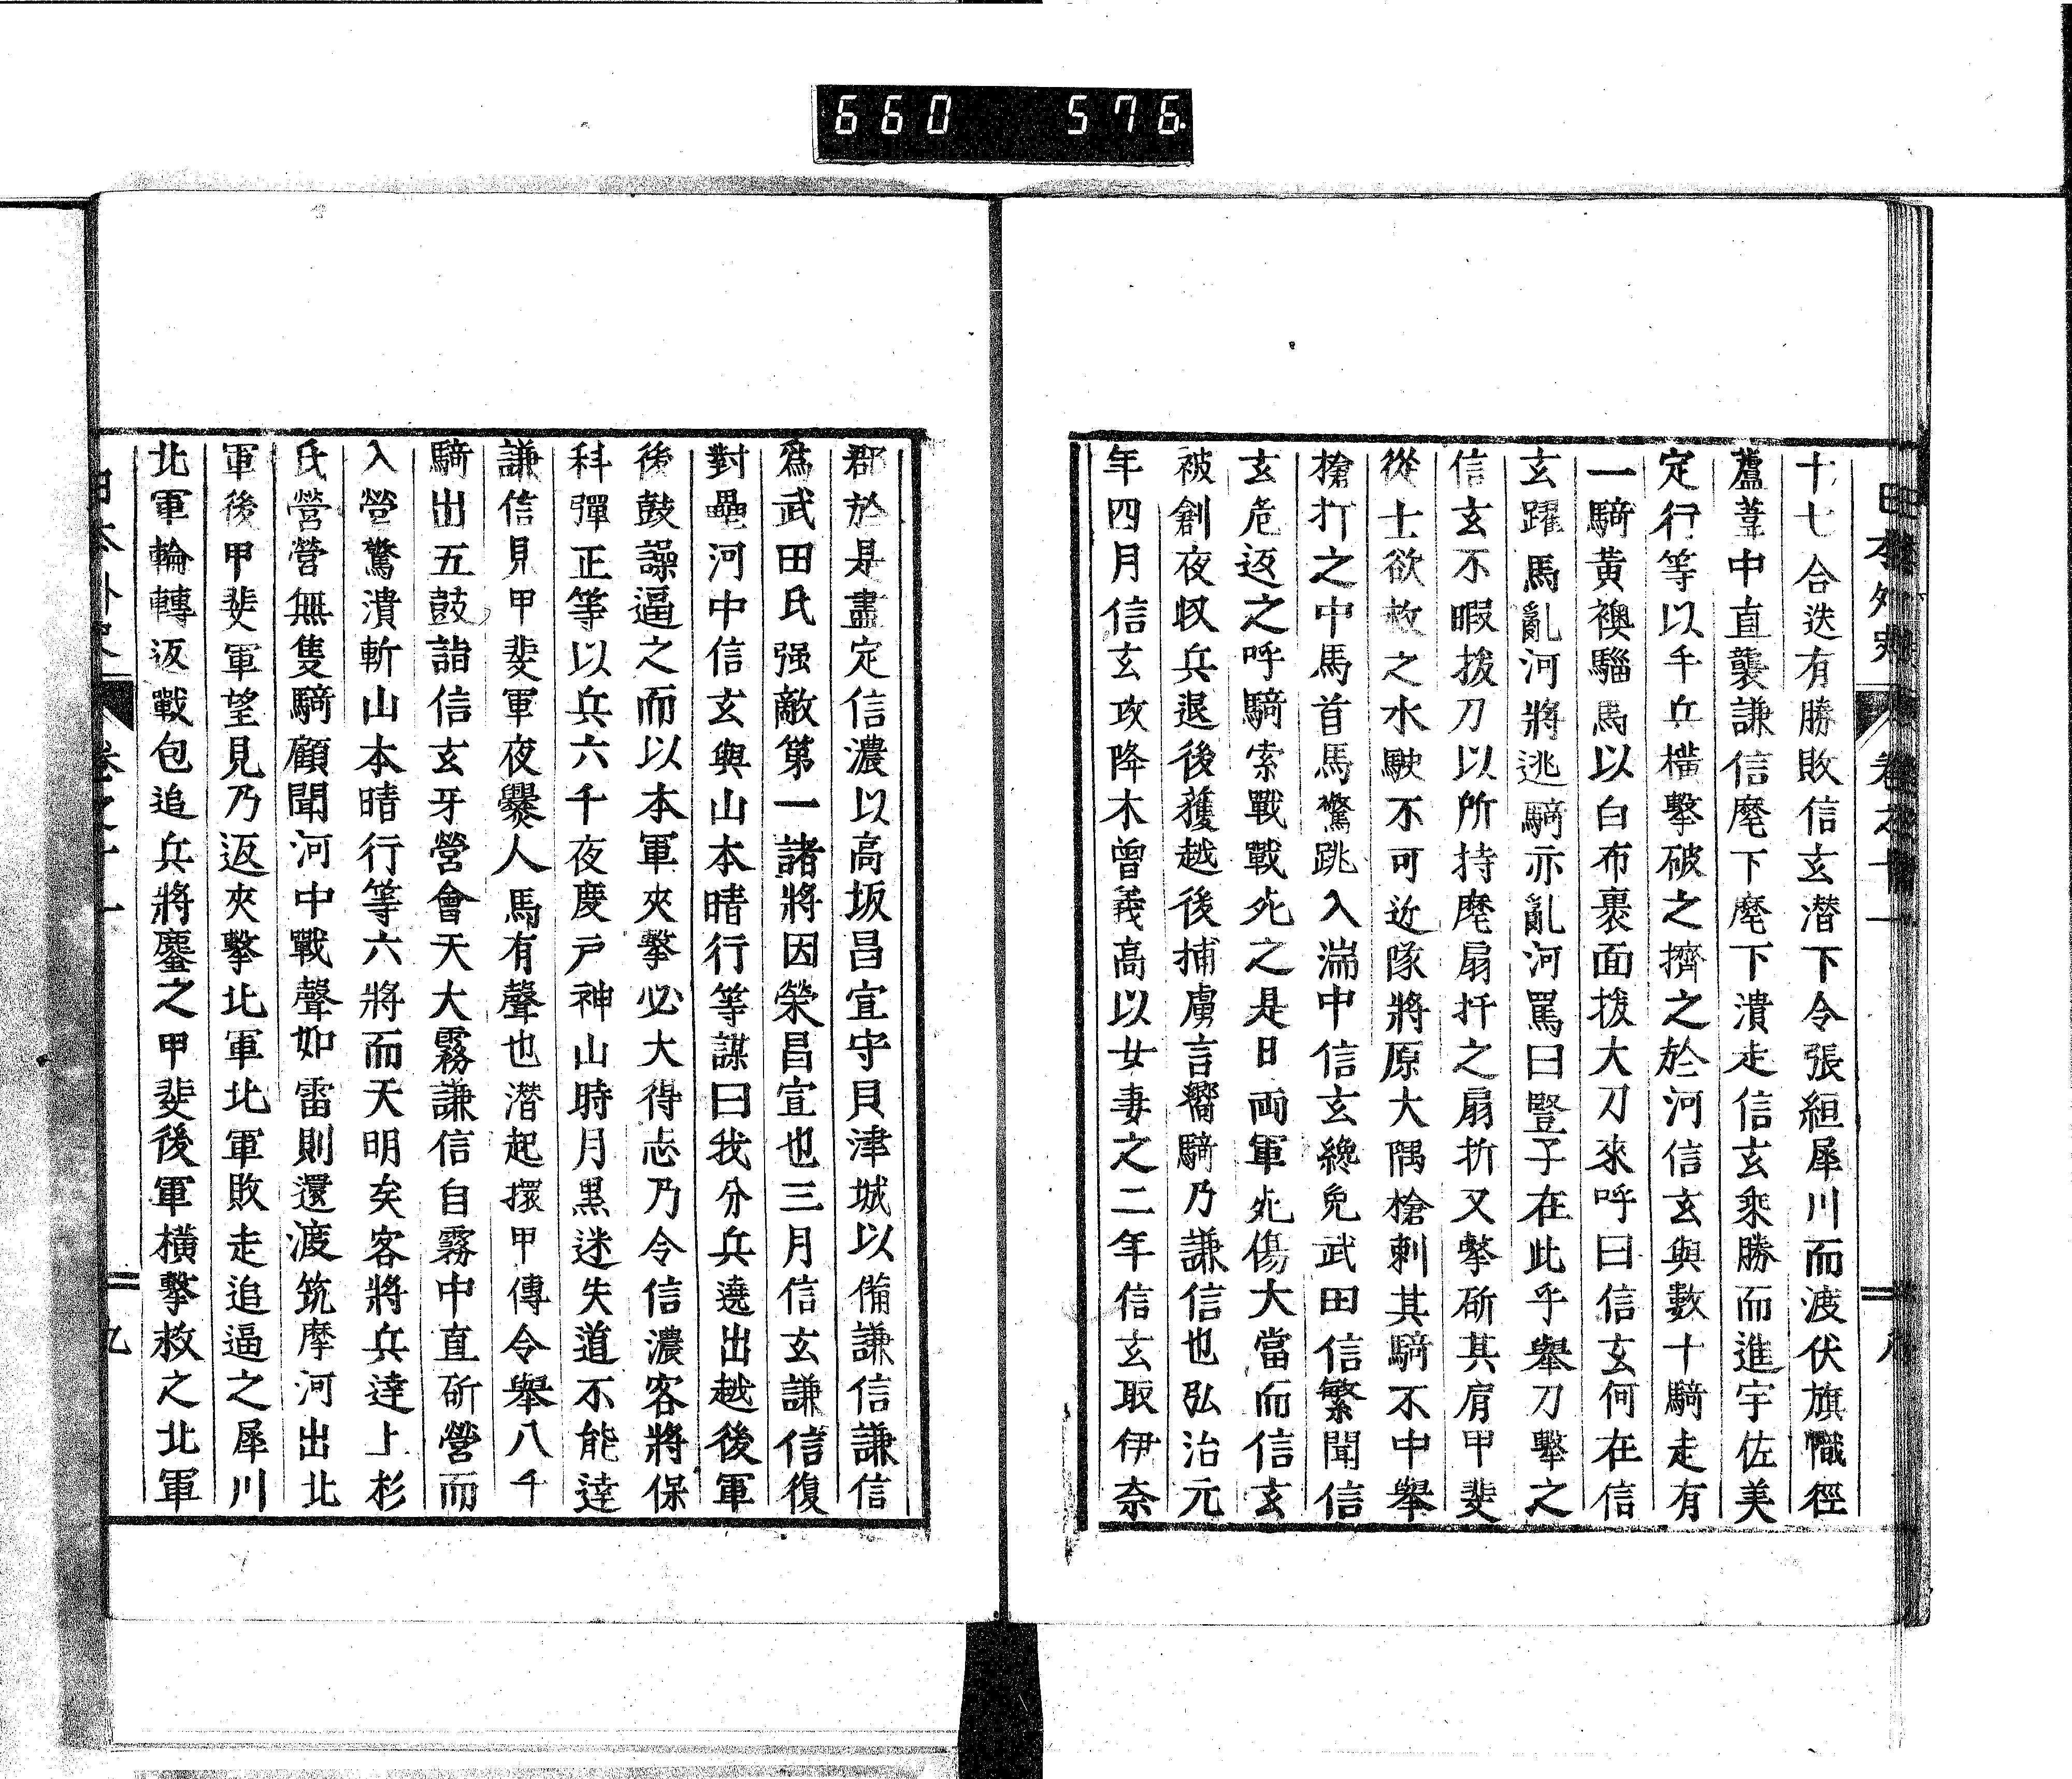 660 576
日本外史 卷之十一 八
十七合迭有勝敗信玄潜下令張絚犀川而渡伏旗幟徑
蘆葦中直襲謙信麾下麾下潰走信玄乘勝而進宇佐美
定行等以千兵橫擊破之擠之於河信玄與數十騎走有
一騎黃襖騮馬以白布裹面拔大刀來呼曰信玄何在信
玄躍馬亂河將逃騎亦亂河罵曰豎子在此乎舉刀擊之
信玄不暇拔刀以所持麾扇扞之扇折又擊斫其肩甲斐
從士欲救之水駛不可近隊將原大隅槍刺其騎不中舉
槍打之中馬首馬驚跳入湍中信玄纔免武田信繁聞信
玄危返之呼騎索戰戰死之是日兩軍死傷大當而信玄
被創夜収兵退後獲越後捕虜言嚮騎乃謙信也弘治元
年四月信玄攻降木曾義高以女妻之二年信玄取伊奈
郡於是盡定信濃以高坂昌宜守貝津城以備謙信謙信
爲武田氏强敵第一諸將因榮昌宜也三月信玄謙信復
對壘河中信玄與山本晴行等謀曰我分兵遶出越後軍
後鼓譟逼之而以本軍夾擊必大得志乃令信濃客將保
科彈正等以兵六千夜度戶神山時月黑迷失道不能達
謙信見甲斐軍夜爨人馬有聲也潜起擐甲傳令舉八千
騎出五鼓詣信玄牙營會天大霧謙信自霧中直斫營而
入營驚潰斬山本晴行等六將而天明矣客將兵達上杉
氏營營無隻騎顧聞河中戰聲如雷則還渡筑摩河出北
軍後甲斐軍望見乃返夾擊北軍北軍敗走追逼之犀川
北軍輪轉返戰包追兵將鏖之甲斐後軍橫擊救之北軍
日本外史 卷之十一 九